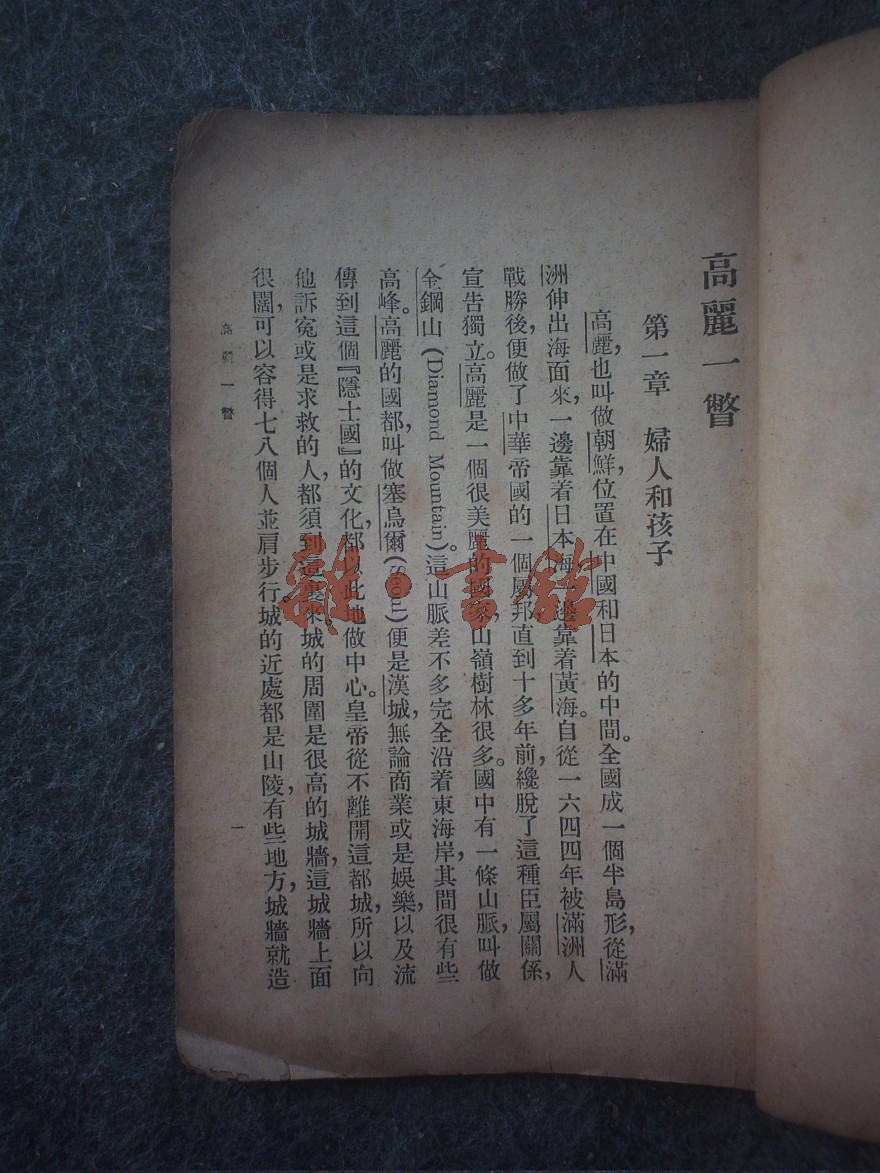 高麗一瞥
第一章　婦人和孩子
高麗，也叫做朝鮮，位置在中國和日本的中間。全國成一個半島形，從滿
洲伸出海面來，一邊靠着日本海，一邊靠着黃海。自從一六四四年被滿洲人
戰勝後，便做了中華帝國的一個屬邦，直到十多年前，纔脫了這種臣屬關係，
宣告獨立。高麗是一個很美麗的國家，山嶺樹林很多。國中有一條山脈，叫做
金鋼山(Diamond Mountain)。這山脈差不多完全沿着東海岸，其間很有些
高峰。高麗的國都，叫做塞烏爾(Seoul)便是漢城，無論商業或是娛樂，以及流
傳到這個『隱士國』的文化，都以此地做中心。皇帝從不離開這都城，所以向
他訴冤或是求救的人，都須到這裏來。城的周圍是很高的城牆，這城牆上面
很闊，可以容得七八個人並肩步行。城的近處都是山陵，有些地方，城牆就造
高麗一瞥
一
雜·書館